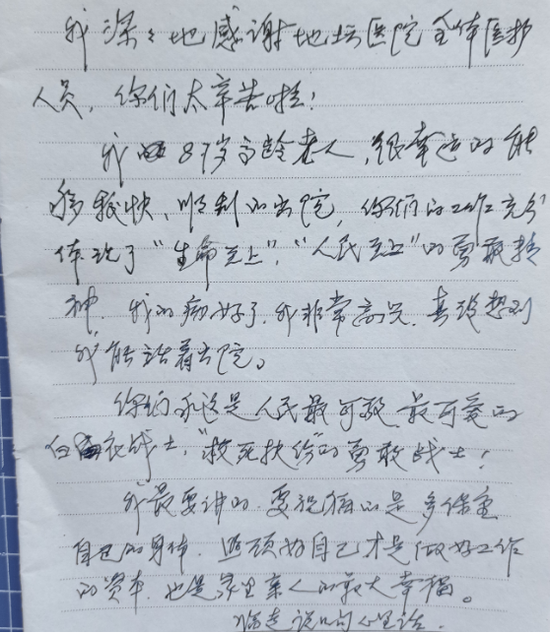 我深深地感谢地坛医院全体医护
人员，你们太辛苦啦！
我87岁高龄老人，很幸运的能
够较快、顺利的出院，你们的工作充分
体现了“生命至上”，“人民至上”的勇敢精
神，我的病好了，我非常高兴，真没想到
我能活着出院。
你们永远是人民最可敬、最可爱的
白衣战士，“救死扶伤”的勇敢战士！
我最要讲的，要祝福的是多保重
自己的身体，照顾好自己才是做好工作
的资本，也是家里亲人的最大幸福。
临走说响心里话。